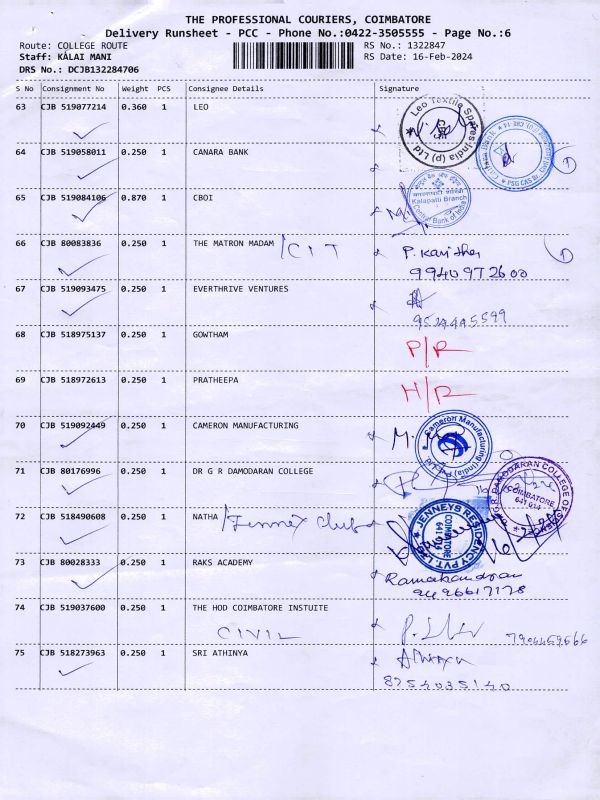 THE PROFESSIONAL COURIERS, COIMBATORE
Delivery Runsheet - PCC - Phone No.:0422-3505555 - Page No.:6
Route: COLLEGE ROUTE RS No.: 1322847
Staff: KALAI MANI RS Date: 16-Feb-2024
DRS No.: DCJB132284706
S No Consignment No Weight PCS Consignee Details Signature
63 CJB 519077214 0.360 1 LEO
Leo Textile Spares India (p) Ltd
64 CJB 519058011 0.250 1 CANARA BANK
65 CJB 519084106 0.870 1 CBOI
Kalapatti Branch
Central Bank of India
66 CJB 80083836 0.250 1 THE MATRON MADAM / CIT
9940972600
67 CJB 519093475 0.250 1 EVERTHRIVE VENTURES
68 CJB 518975137 0.250 1 GOWTHAM P/R
69 CJB 518972613 0.250 1 PRATHEEPA H/R
70 CJB 519092449 0.250 1 CAMERON MANUFACTURING
Cameron Manufacturing (India)
71 CJB 80176996 0.250 1 DR G R DAMODARAN COLLEGE
DAMODARAN COLLEGE OF
COIMBATORE
641 014
72 CJB 518490608 0.250 1 NATHA / Jennex Club
JENNEYS RESIDENCY PVT. LTD
COIMBATORE
73 CJB 80028333 0.250 1 RAKS ACADEMY
74 CJB 519037600 0.250 1 THE HOD COIMBATORE INSTUITE
CIVIL
75 CJB 518273963 0.250 1 SRI ATHINYA
8754035140